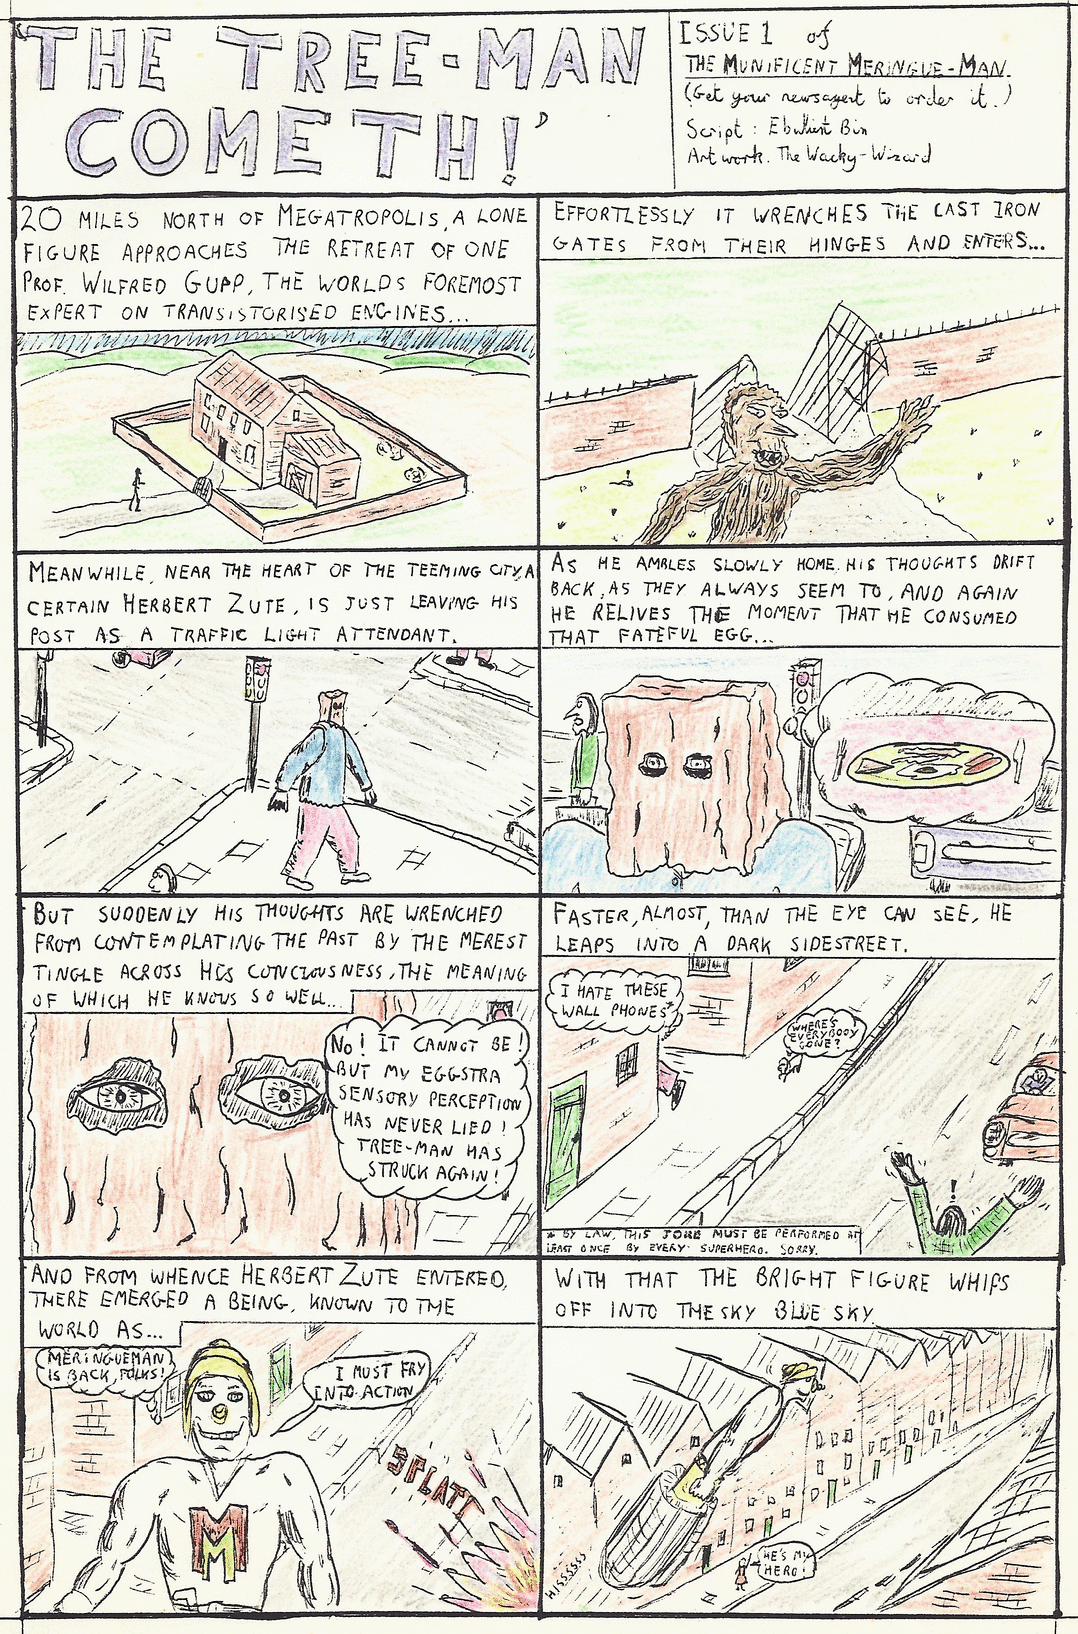 'THE TREE-MAN
COMETH!'
ISSUE 1 of
THE MUNIFICENT MERINGUE-MAN.
(Get your newsagent to order it.)
Script: Ebullient Bin
Artwork. The Wacky-Wizard
20 MILES NORTH OF MEGATROPOLIS, A LONE
FIGURE APPROACHES THE RETREAT OF ONE
PROF. WILFRED GUPP, THE WORLDS FOREMOST
EXPERT ON TRANSISTORISED ENGINES...
EFFORTLESSLY IT WRENCHES THE CAST IRON
GATES FROM THEIR HINGES AND ENTERS...
MEANWHILE, NEAR THE HEART OF THE TEEMING CITY, A
CERTAIN HERBERT ZUTE, IS JUST LEAVING HIS
POST AS A TRAFFIC LIGHT ATTENDANT.
AS HE AMBLES SLOWLY HOME, HIS THOUGHTS DRIFT
BACK, AS THEY ALWAYS SEEM TO, AND AGAIN
HE RELIVES THE MOMENT THAT HE CONSUMED
THAT FATEFUL EGG...
BUT SUDDENLY HIS THOUGHTS ARE WRENCHED
FROM CONTEMPLATING THE PAST BY THE MEREST
TINGLE ACROSS HIS CONCIOUSNESS, THE MEANING
OF WHICH HE KNOWS SO WELL...
NO! IT CANNOT BE!
BUT MY EGGSTRA
SENSORY PERCEPTION
HAS NEVER LIED!
TREE-MAN HAS
STRUCK AGAIN!
FASTER, ALMOST, THAN THE EYE CAN SEE, HE
LEAPS INTO A DARK SIDESTREET.
I HATE THESE
WALL PHONES*
WHERE'S
EVERYBODY
GONE?
!
* BY LAW, THIS JOKE MUST BE PERFORMED AT
LEAST ONCE BY EVERY SUPERHERO. SORRY.
AND FROM WHENCE HERBERT ZUTE ENTERED,
THERE EMERGED A BEING, KNOWN TO THE
WORLD AS...
MERINGUEMAN
IS BACK, FOLKS!
I MUST FRY
INTO ACTION
SPLATT
M
WITH THAT THE BRIGHT FIGURE WHIPS
OFF INTO THE SKY BLUE SKY.
HISSSSSS
HE'S MY
HERO!